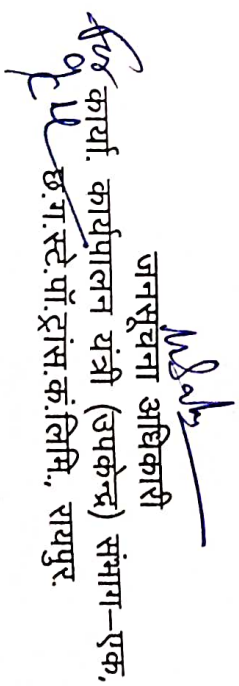 जनसूचना अधिकारी
कार्या. कार्यपालन यंत्री (उपकेन्द्र) संभाग-एक,
छ.ग.स्टे.पॉ.ट्रांस.कं.लिमि., रायपुर.